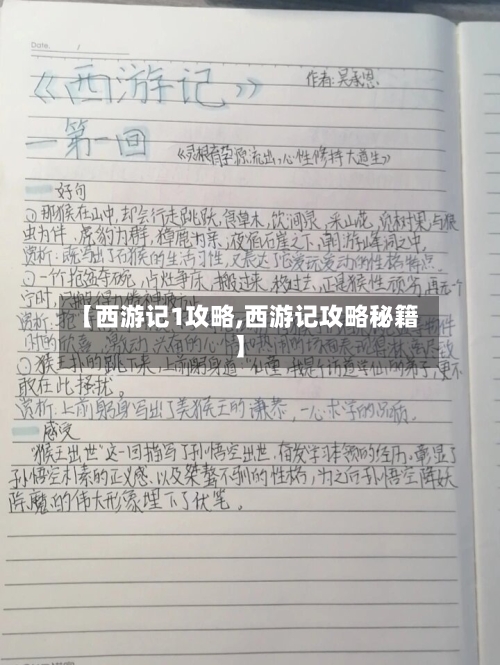 Date. /
《西游记》
作者:吴承恩
第一回
《灵根育孕源流出,心性修持大道生》
好句
①那猴在山中,却会行走跳跃,食草木,饮涧泉,采山花,觅树果;与狼
虫为伴,虎豹为群,獐鹿为亲,夜宿石崖之下,朝游峰洞之中。
赏析:既写出了石猴的生活习性,又表达了它爱玩爱动的性格特点。
②一个个抢盆夺碗,占灶争床,搬过来,移过去,正是猴性顽劣,再无一个
宁时,
【西游记1攻略,西游记攻略秘籍
】
赏析:抢
时的欣喜、激动
③猴王扑的跳下来,上前躬身道
敢在此搔扰。
赏析:上前躬身写出了美猴王的谦恭,一心求学的品质。
感受
"猴王出世"这一回描写了孙悟空出世、奋发学习本领的经历,彰显了
孙悟空朴素的正义感,以及桀骜不驯的性格,为之后孙悟空降妖
除魔的伟大形象埋下了伏笔。